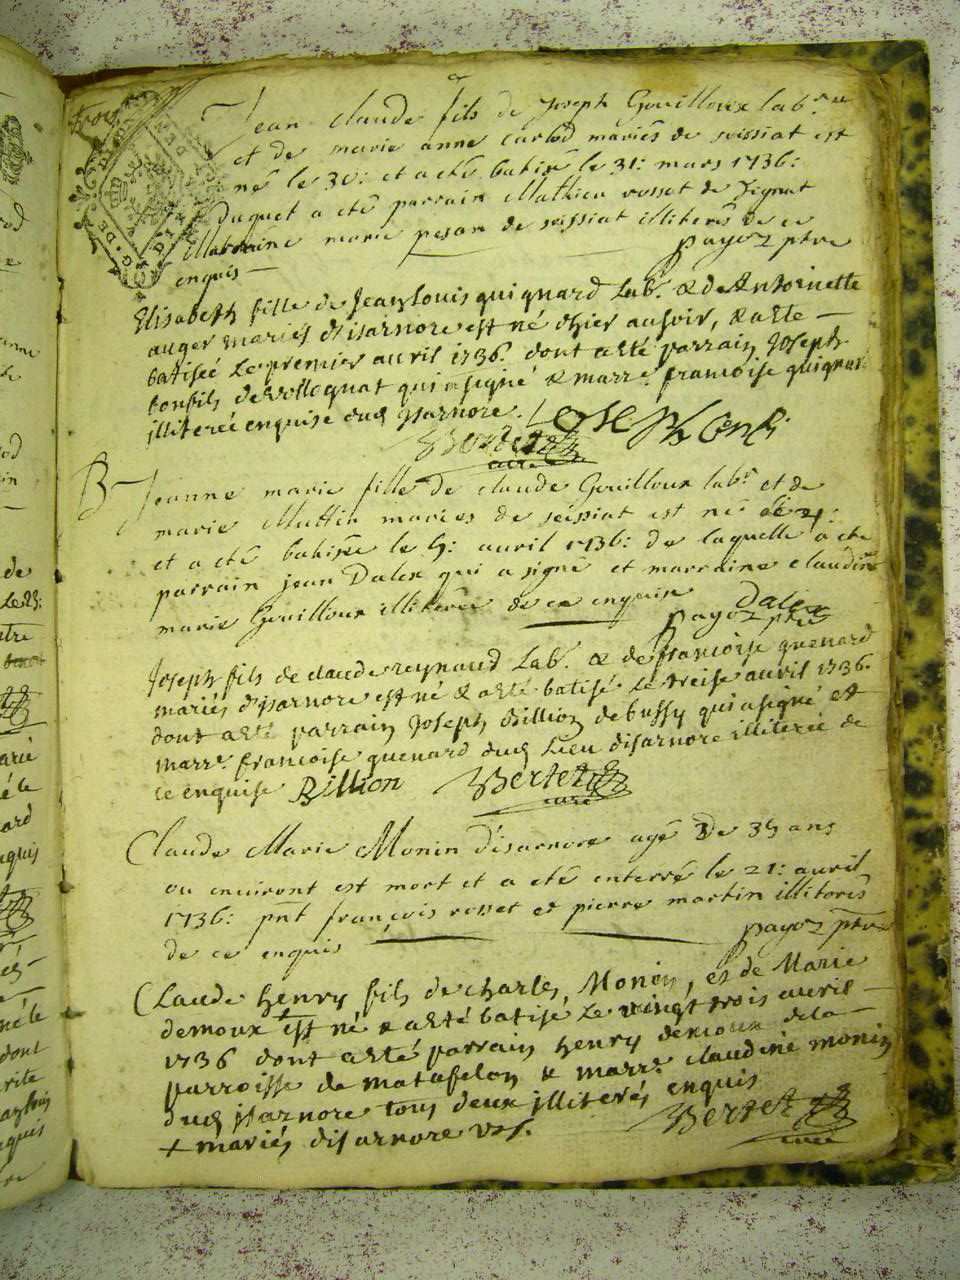 trois
Jean claude fils de Joseph Gouilloux lab.r
et de marie anne carlod mariés de seissiat est
né le 30: et a eté batisé le 31: mars 1736:
Duquel a eté parrain Mathieu rosset de
Marraine marie pesan de seissiat illiterés de ce
enquis — payoz ptre
Elisabeth fille de Jean Louis quignard Lab.r & de Antoinette
auger mariés d'isarnore est né d'hier au soir, & a été —
batisée Le premier auril 1736. dont a eté parrain Joseph
bonfils de vollognat qui a signé & marr.e francoise quignard
illiterée enquise dud Isarnore. Joseph bonfils
Bertet curé
B Jeanne marie fille de claude Gouilloux lab.r et de
marie Muttin mariés de seissiat est né le
et a eté batisée le 5: auril 1736: de laquelle a eté
parrain jean Dalex qui a signé et marraine claudine
marie Gouilloux illiterée de ce enquise Dalex
payoz ptre
Joseph fils de claude reynaud Lab.r & de francoise quenard
mariés d'isarnore est né & a eté batisé Le treise auril 1736.
dont a eté parrain Joseph Billion de bussy qui a signé et
marr.e francoise quenard dud Lieu disarnore illiterée de
ce enquise Billion Bertet curé
Claude Marie Monin d'isarnore agé de 35 ans
ou enuiront est mort et a eté enterré le 21: auril
1736: pnt françois rosset et pierre martin illiterés
de ce enquis payoz ptre
Claude henry fils de charles Monin, et de Marie
demoux + est né & a eté batisé Le vingt trois auril —
1736 dont a eté parrain henry demoux dela —
parroisse de matafelon & marr.e claudine monin
dud isarnore tous deux illiterés enquis
+ mariés disarnore Bertet curé